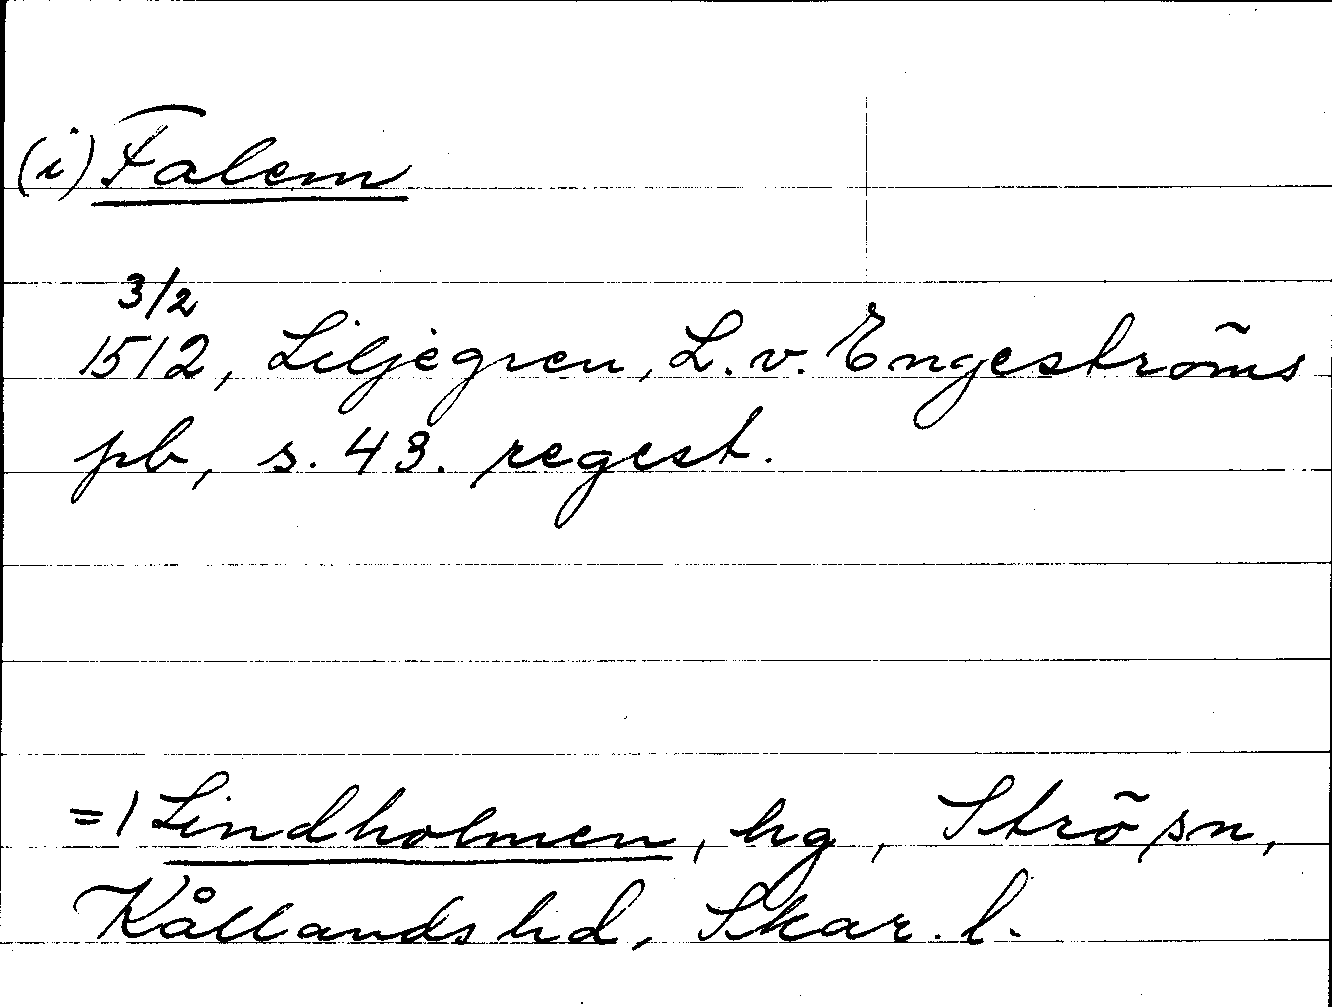 (i) Falem
3/2
1512, Liljegren, L. v. Engeströms
pb, s. 43. regest.
=1 Lindholmen, hg, Strö sn,
Kållands hd, Skar. l.